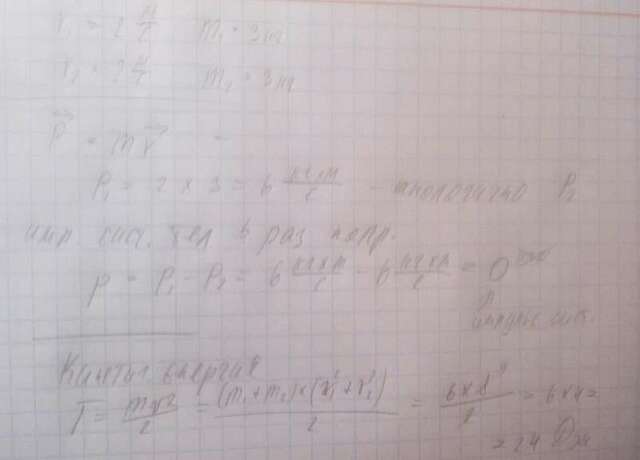 V₁ = 2 м/с m₁ = 3 кг
V₂ = 2 м/с m₂ = 3 кг
p⃗ = mv⃗ -
P₁ = 2 × 3 = 6 кг×м/с - аналогично P₂
имп сист. тел в раз напр.
p = P₁ - P₂ = 6 кг×м/с - 6 кг×м/с = 0
импульс сист.
Кинетич энергия
T = mv²/2 = (m₁+m₂)×(v₁²+v₂²)/2 = 6×8/2 = 6×4 =
= 24 Дж